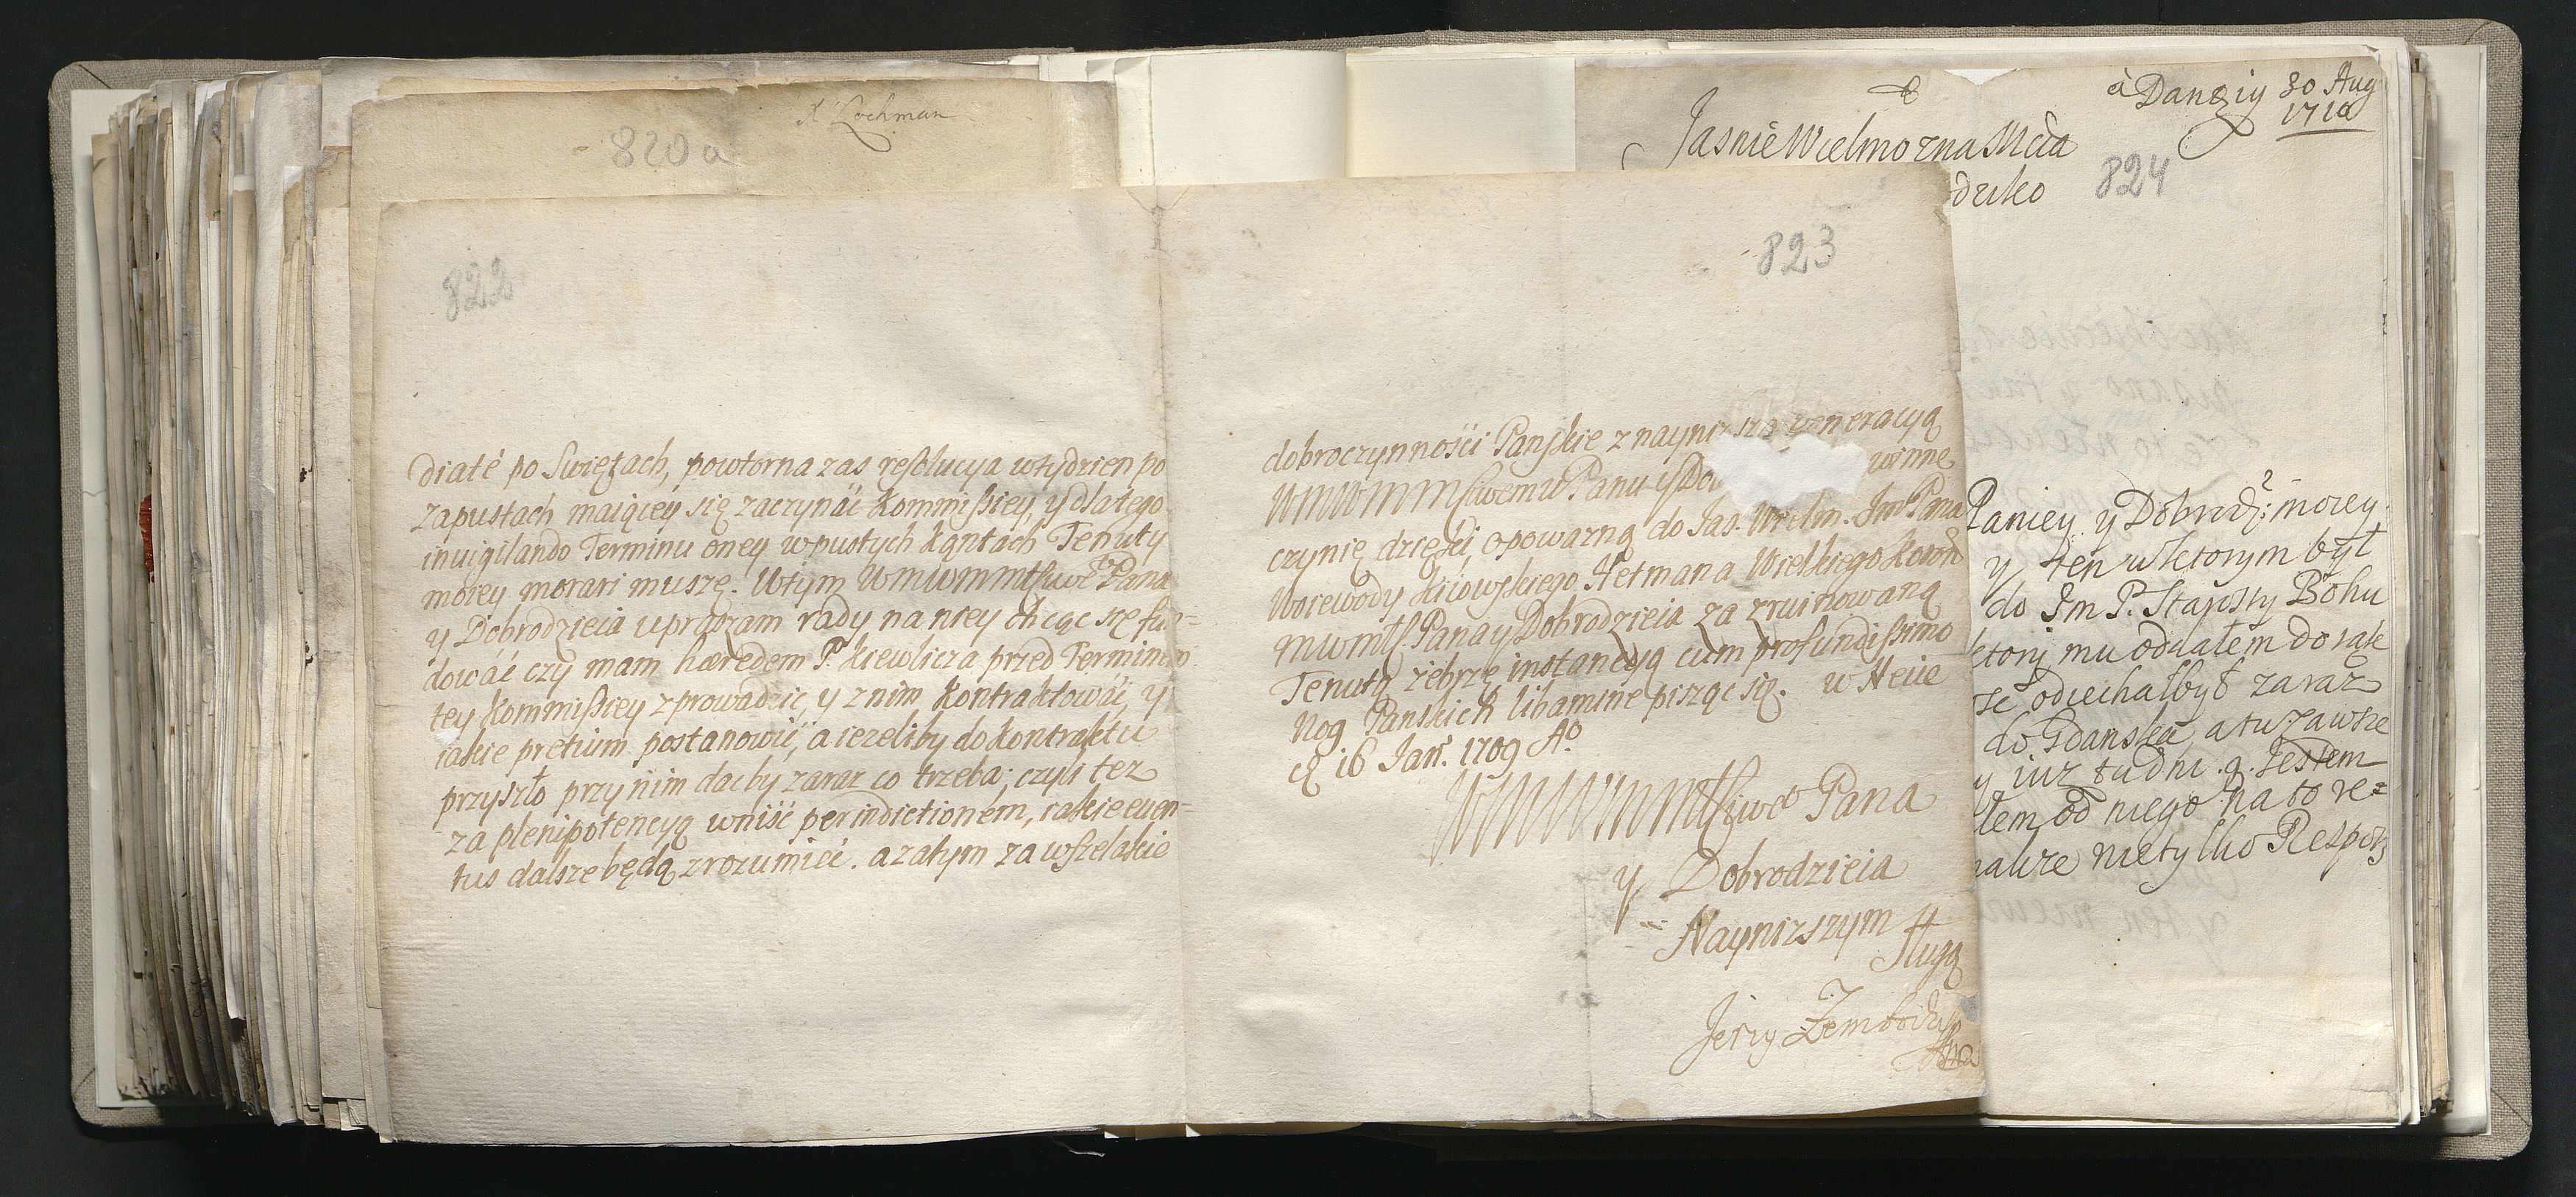 X Lochman
820a
822
diatė po Swiętach, powtorna zas resolucya wtydzien po
zapustach maiącey się zaczynäć Kommissiey, y dlatego
inuigilando Terminu oney wpustych kąntach Tenuty
moiey morari muszę. Wtym WMWMMsciwe° Pana
y Dobrodzieia upraszam rady na niey chcąc się fun=
dowäć czy mam hæredem P. Kiewlicza przed Terminem
tey Kommissiey zprowadzic, y znim Kontraktowäć, y
iakie pretium postanowić, a iezeliby do Kontraktu
przyszło przynim dacby zaraz co trzeba; czyli tez
za plenipotencyą wniść per indictionem, iakie euen=
tus dalsze będą zrozumieć. a zatym za wszelakie
823
dobroczynności Panskie z nayniższą veneracyą
WMWMMsciwemu Panu y Do winne
czynię dzięki, opowazną do Jas. Wielm. Jm Pana
Woiewody Kiiowskiego Hetmana Wielkiego Koron
mwmsc. Pana y Dobrodzieia za zruinowaną
Tenutą żebrzę instancyą cum profundissimo
Nog Panskich libamine pisząc się. w Heiie
d 16 Jan. 1709 A°
WMWMMsciwe° Pana
y Dobrodzieia
Naynizszym
sługą
Jerzy
à Danziy 30 Aug
1710
Jasnie Wielmozna Mcia
dziko
824
Paniey y Dobrodz: moiey
y ten wktorym był
do Jm P. Starosty Bohu
ktory mu oddałem do rąk
odiechałbył zaraz
do Gdanska, a tu zawsze
y iuz tu dni 9. Jestem
łem od niego na to re=
nietylko Respons